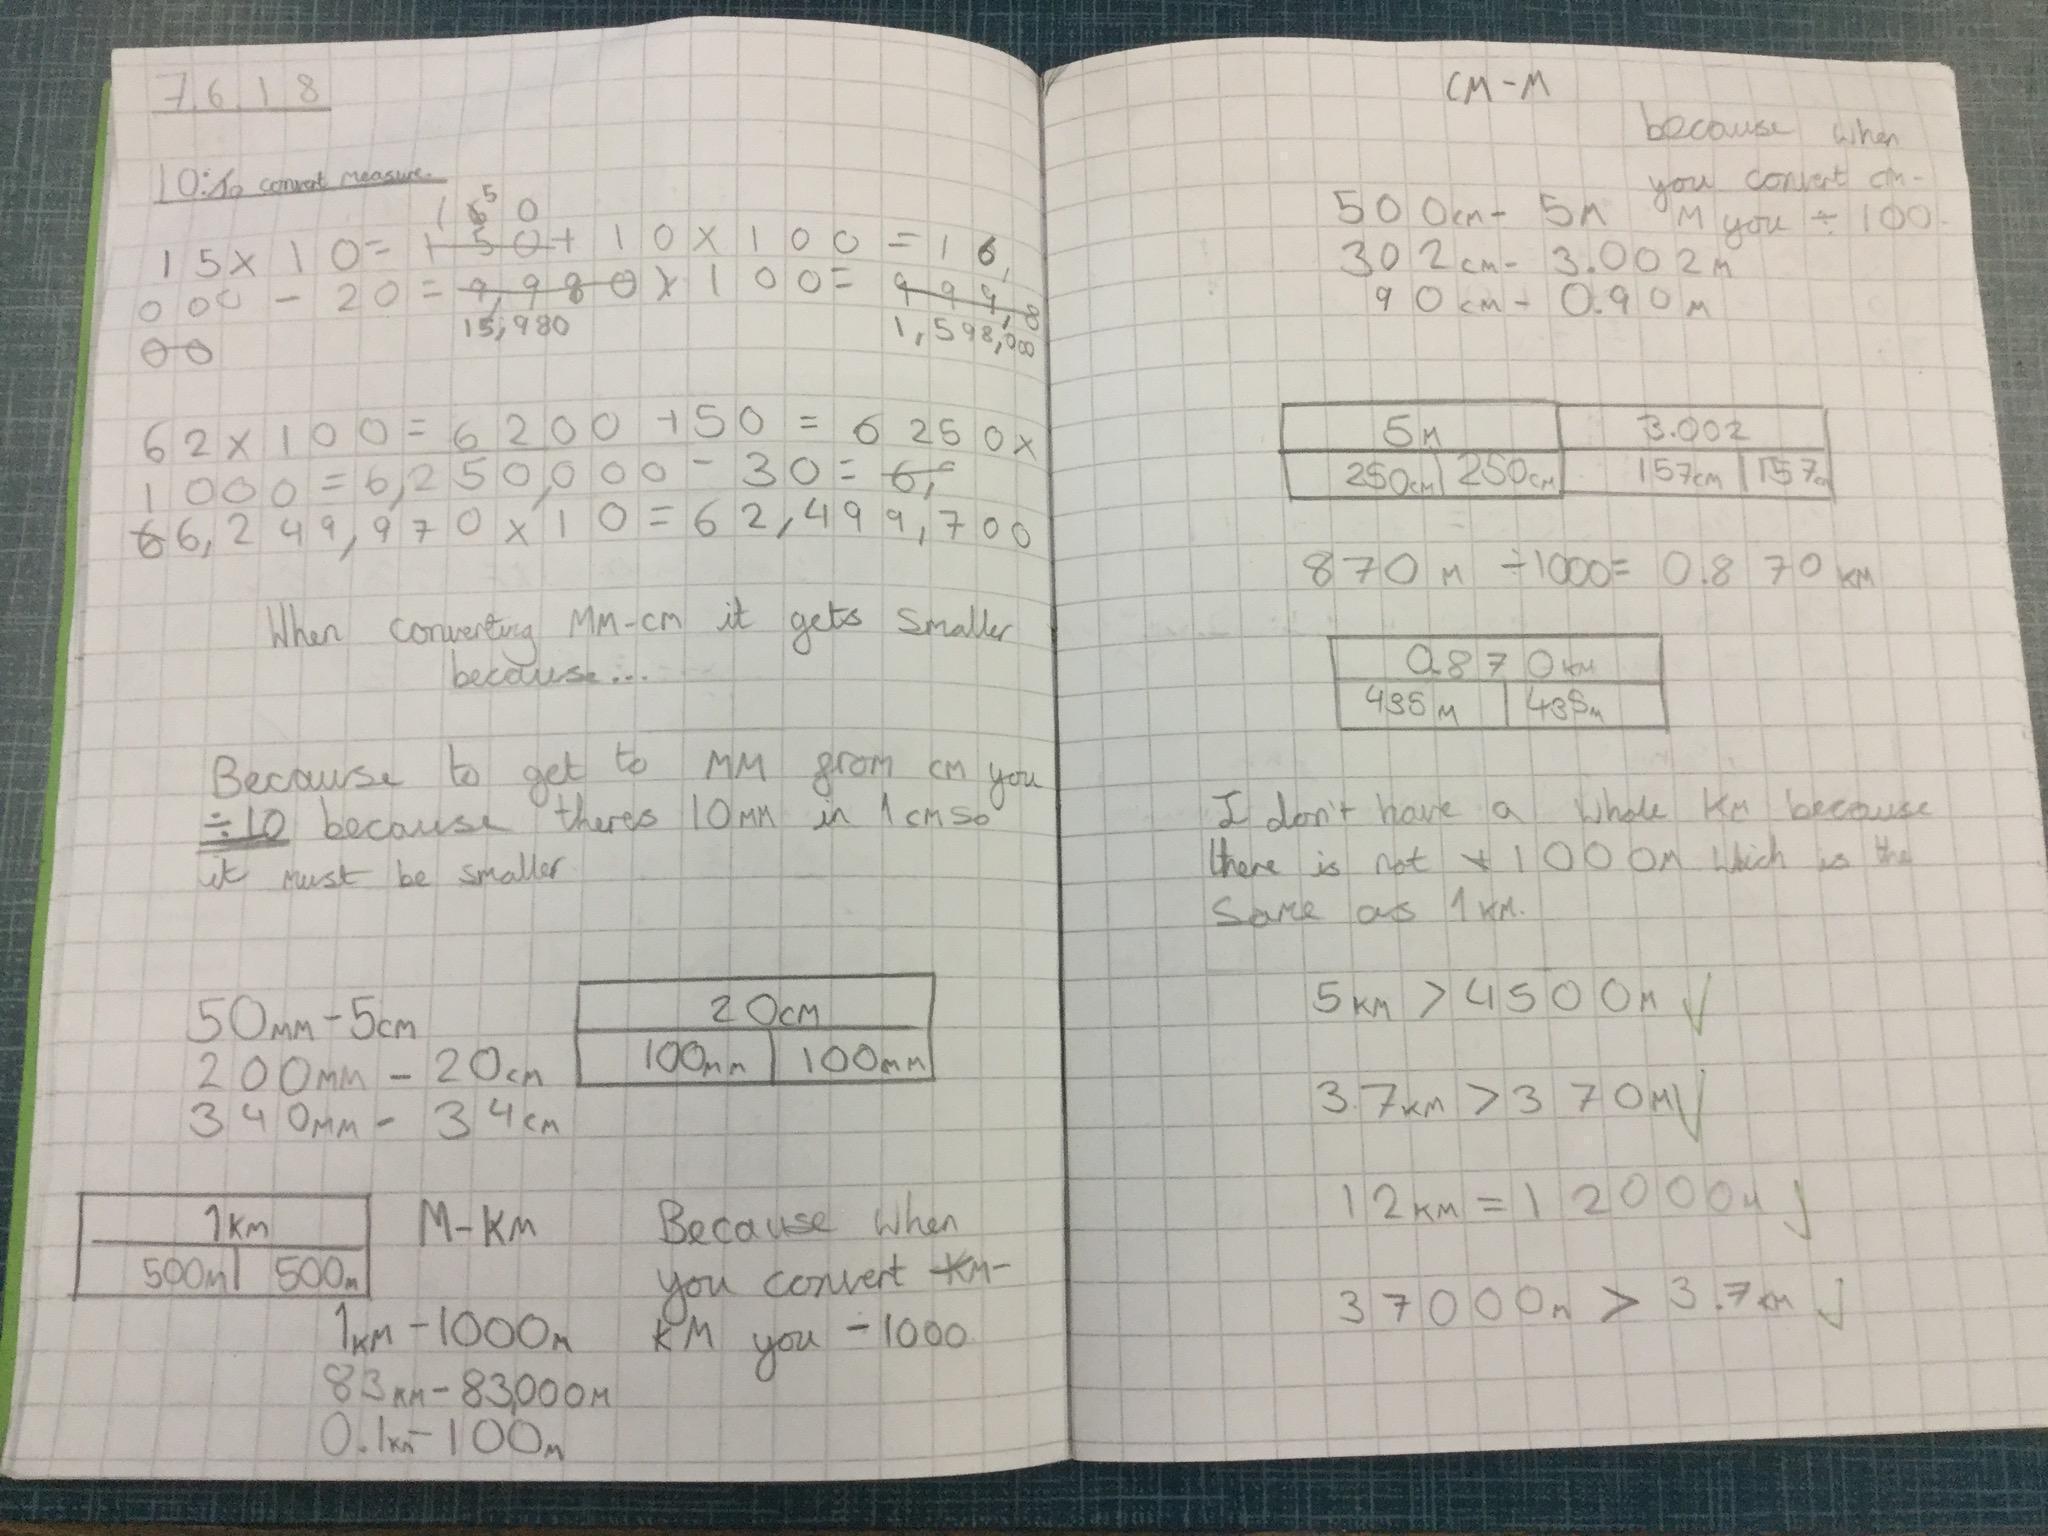 7.6.18
LO: To convert measure.
1 6 5 0
15x10=150+10x100=16,
000-20=9,980x100=999,8
15,980 1,598,000
00
62x100=6200+50=6250x
1000=6,250,000-30=6,
66,249,970x10=62,499,700
When converting MM-cm it gets smaller
because...
Because to get to MM from cm you
÷10 because theres 10mm in 1cm so
it must be smaller
20cm
50mm-5cm
100mm 100mm
200mm-20cm
340mm-34cm
1km
500m 500m
M-KM
1km-1000m
83km-83,000m
0.1km-100m
Because when
you convert KM-
KM you -1000
CM-M
because when
you convert cm-
M you ÷100
500cm-5m
302cm-3.002m
90cm-0.90m
5m 3.002
250cm 250cm 157cm 157c
870m ÷1000=0.870km
0.870km
435m 435m
I don't have a whole Km because
there is not 1000m which is the
same as 1km.
5km>4500m ✓
3.7km>370m ✓
12km=12000m ✓
37000m>3.7km ✓